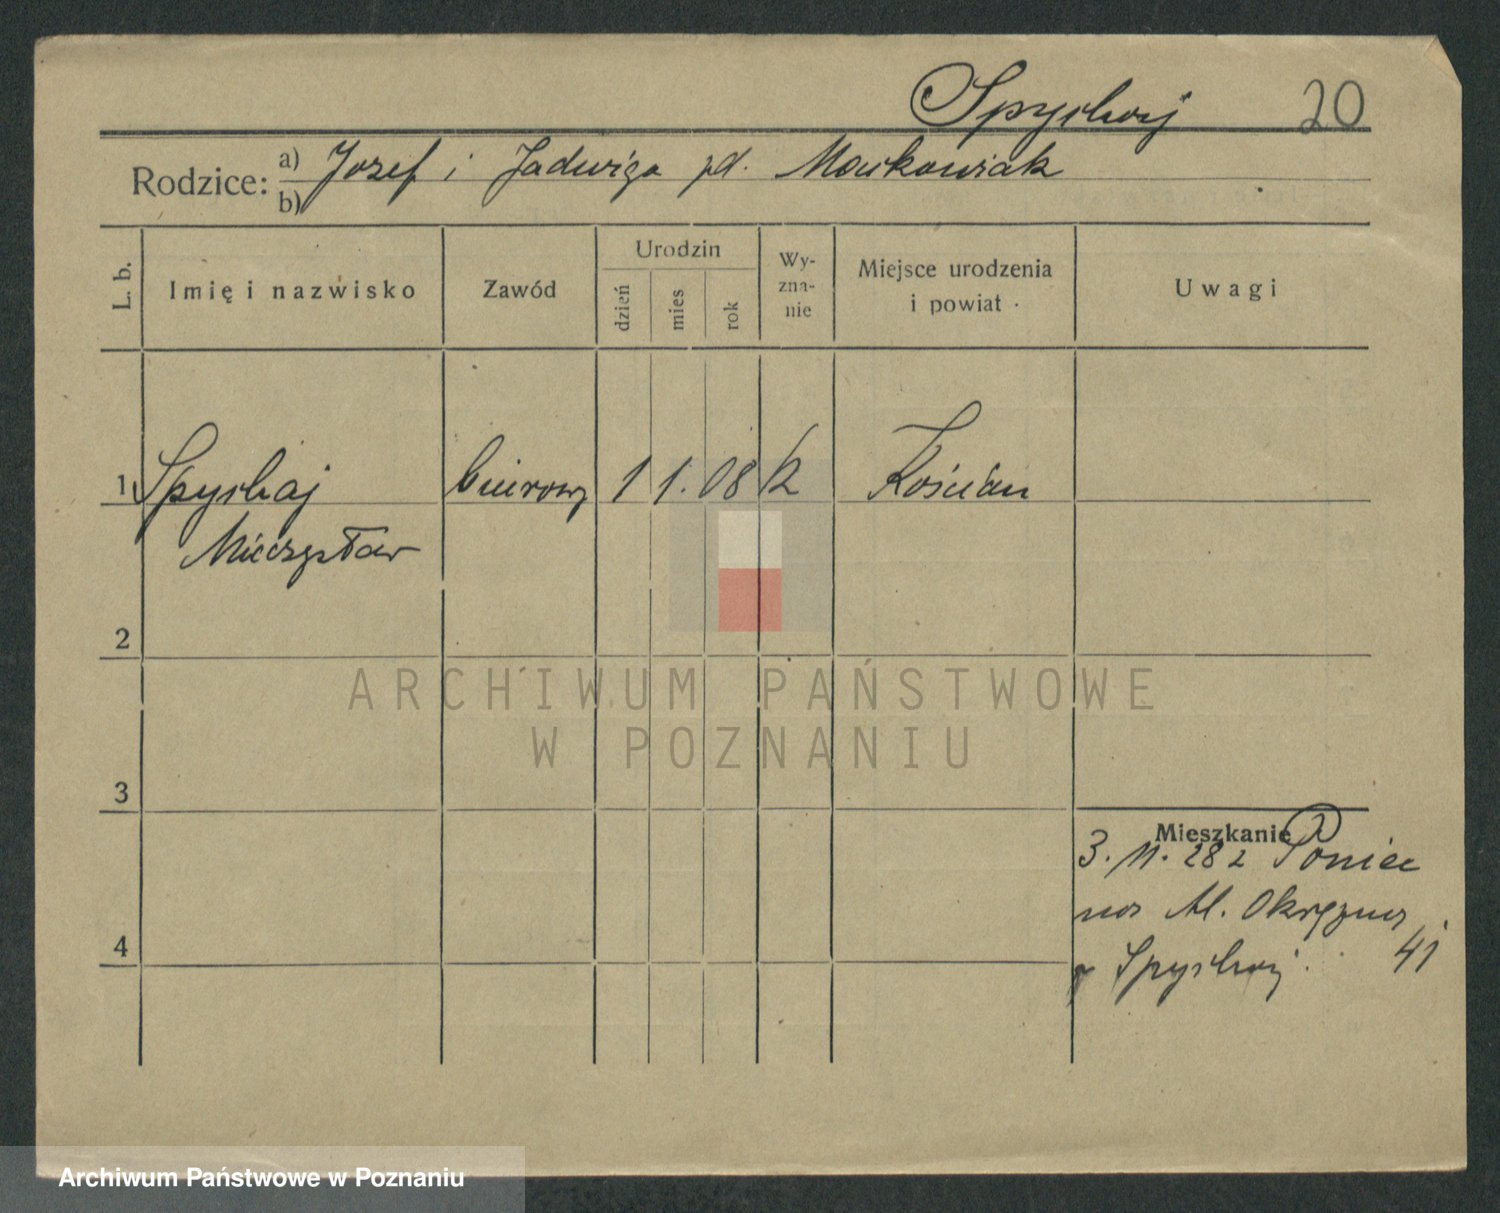 Spychaj 20
Rodzice: a) Jozef i Jadwiga zd. Maćkowiak
b)
L. b. Imię i nazwisko Zawód Urodzin dzień mies rok Wy-zna-nie Miejsce urodzenia i powiat Uwagi
1 Spychaj biurowy 1 1. 08 k Kościan
Mieczysław
2
ARCHIWUM PAŃSTWOWE
W POZNANIU
3
Mieszkanie
3. 11. 28 z Poniec
na Al. Okrężna
41
Spychaj
4
Archiwum Państwowe w Poznaniu